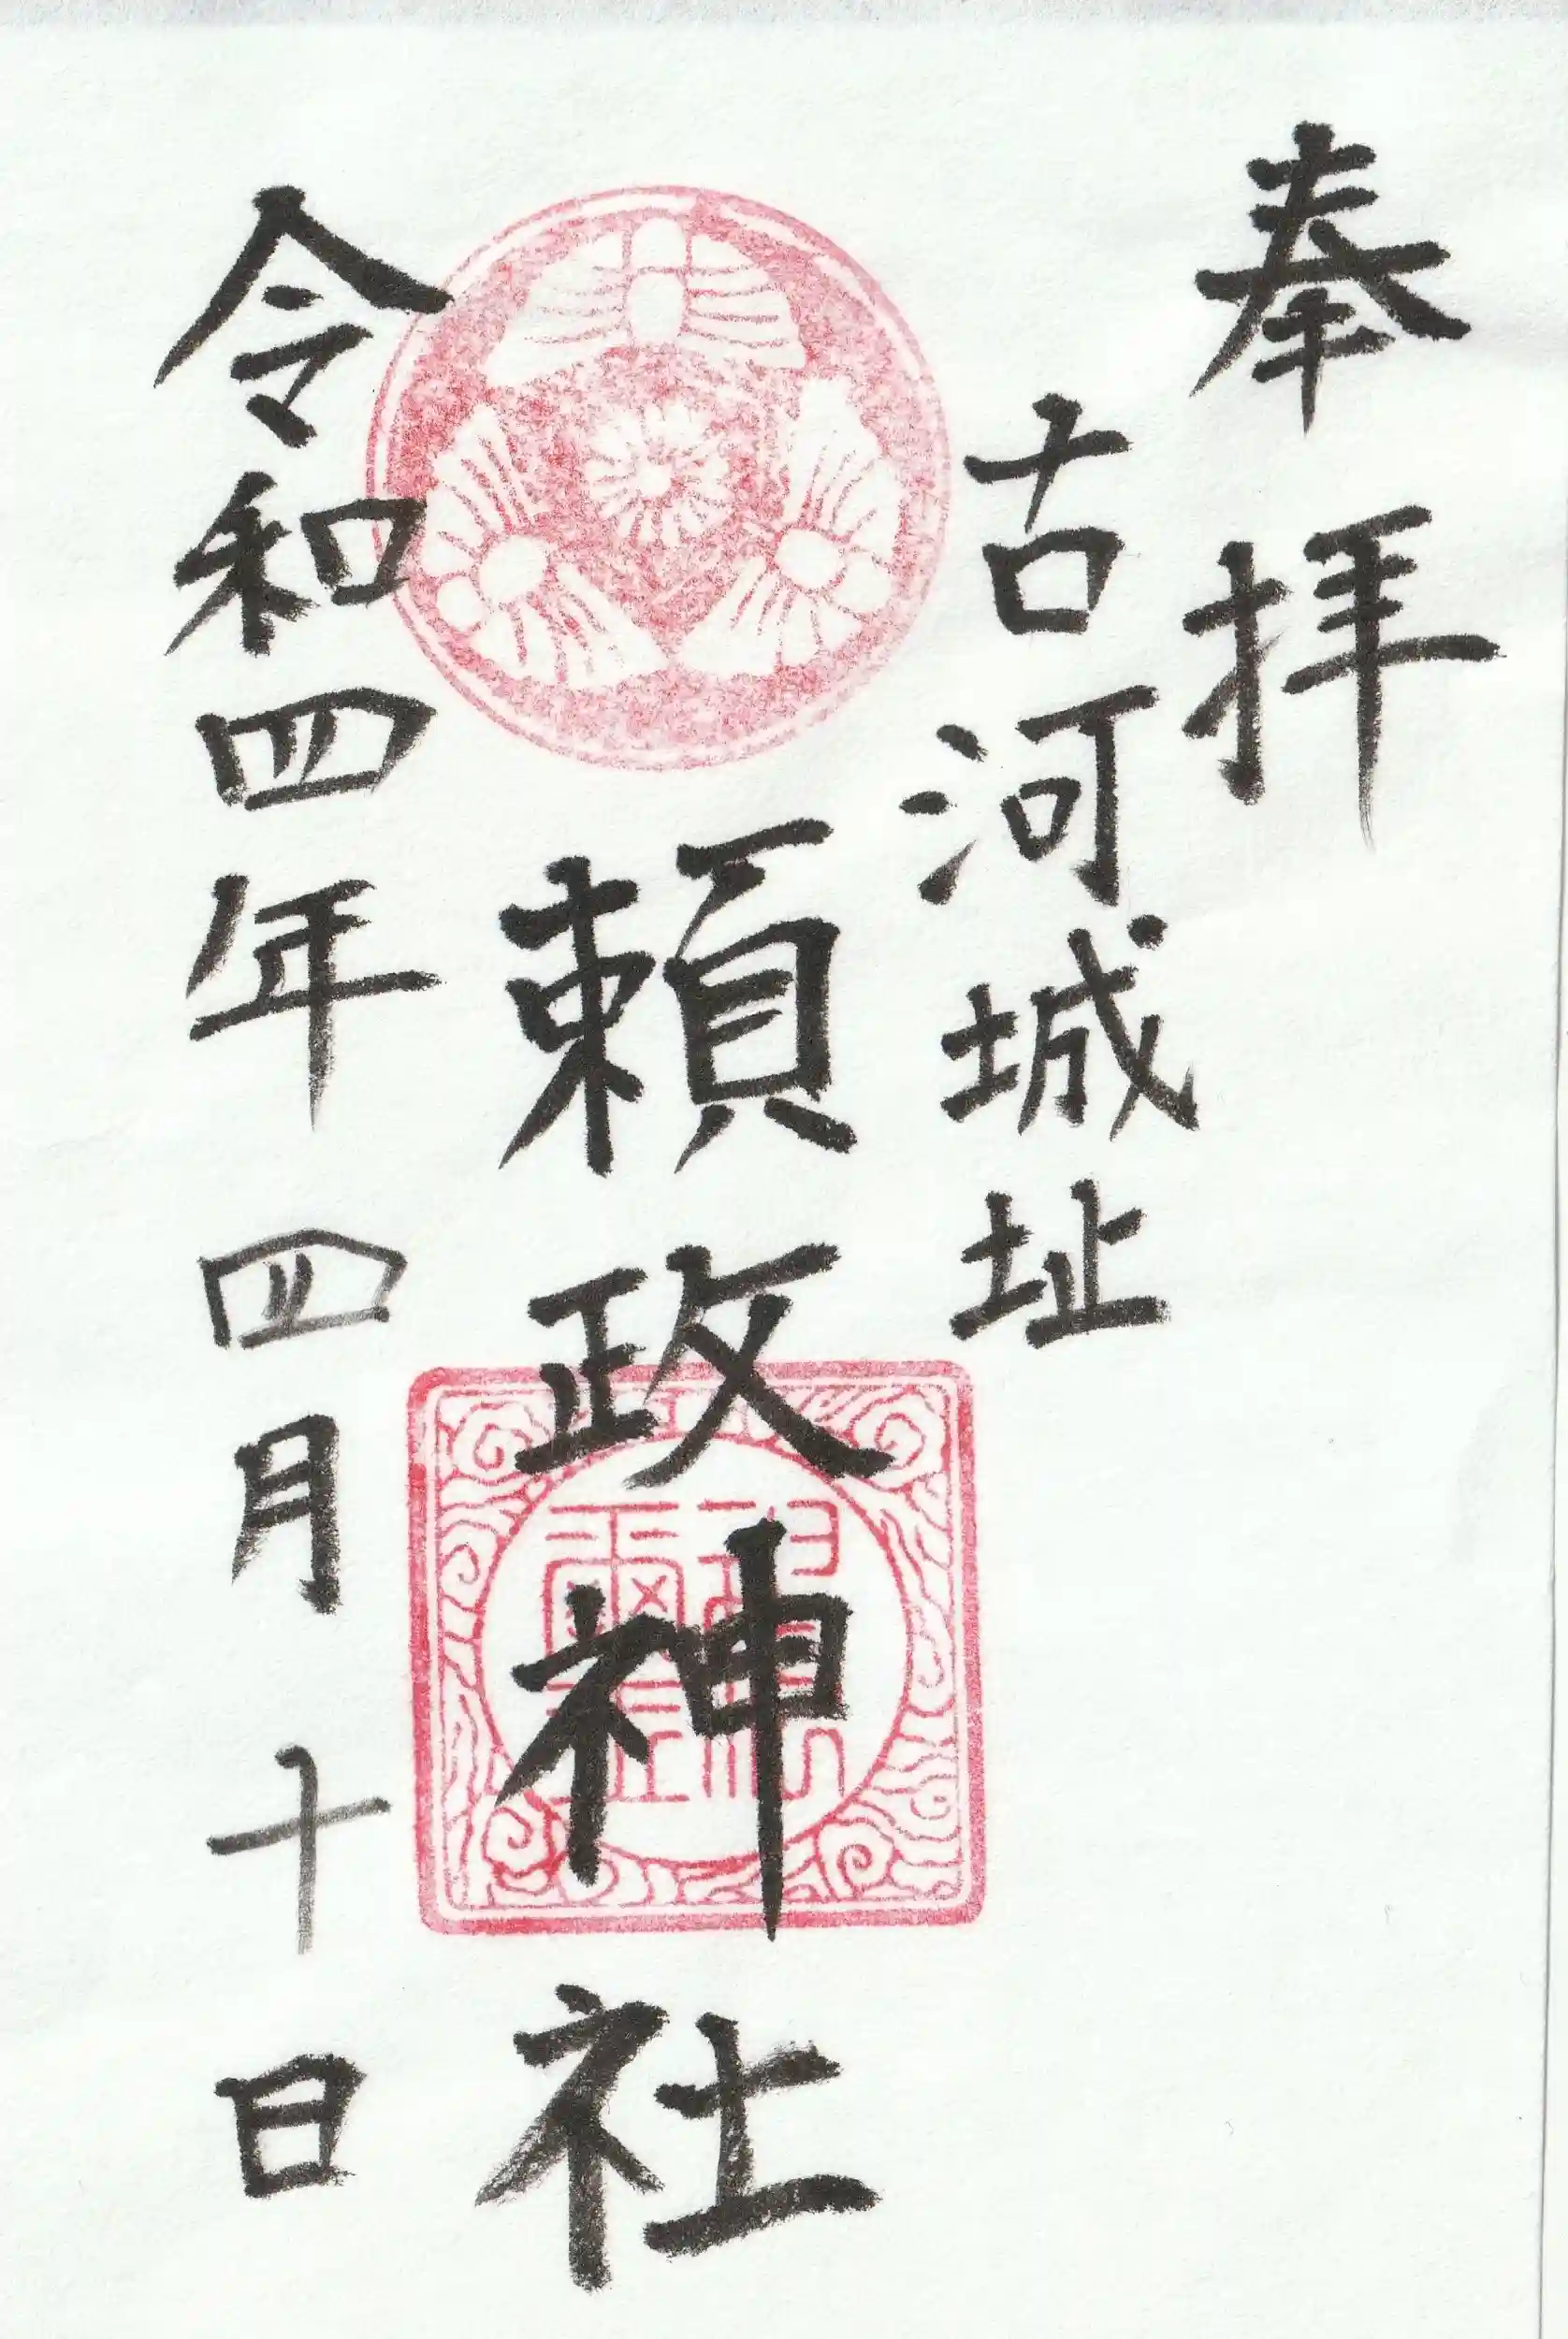 奉拝
古河城址
頼政神社
令和四年 四月 十日